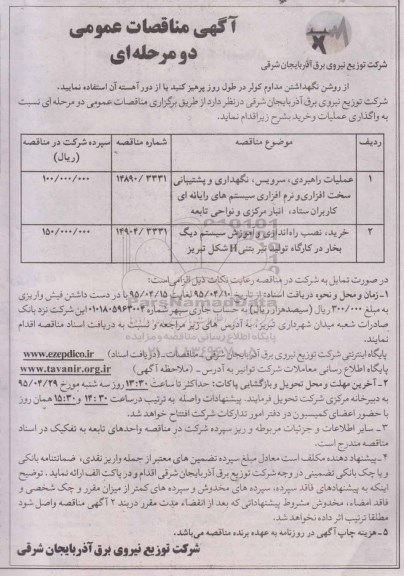 آگهی مناقصات عمومی
دو مرحله‌ای
شرکت توزیع نیروی برق آذربایجان شرقی
از روشن نگهداشتن مداوم کولر در طول روز پرهیز کنید یا از دور آهسته آن استفاده نمایید.
شرکت توزیع نیروی برق آذربایجان شرقی درنظر دارد از طریق برگزاری مناقصات عمومی دو مرحله ای نسبت
به واگذاری عملیات وخرید بشرح زیراقدام نماید.
ردیف موضوع مناقصه شماره مناقصه سپرده شرکت در مناقصه (ریال)
۱ عملیات راهبردی، سرویس، نگهداری و پشتیبانی ۳۳۳۱/ ۱۴۸۹۰ ۱۰۰/۰۰۰/۰۰۰
سخت افزاری و نرم افزاری سیستم های رایانه ای
کاربران ستاد، انبار مرکزی و نواحی تابعه
۲ خرید، نصب راه‌اندازی و آموزش سیستم دیگ ۳۳۳۱/ ۱۴۹۰۴ ۱۵۰/۰۰۰/۰۰۰
بخار در کارگاه تولید تیر بتنی H شکل تبریز
در صورت تمایل به شرکت در مناقصه رعایت نکات ذیل الزامی است:
۱- زمان و محل و نحوه دریافت اسناد: از تاریخ ۹۵/۰۴/۱۰ لغایت ۹۵/۰۴/۱۵ با در دست داشتن فیش واریزی
به مبلغ ۳۰۰/۰۰۰ ریال (سیصدهزار ریال) به حساب جاری سپهر شماره ۰۱۰۱۸۰۵۹۶۳۰۰۴ این شرکت نزد بانک
صادرات شعبه میدان شهرداری تبریز، به آدرس های زیر مراجعه و نسبت به دریافت اسناد مناقصه اقدام
نمایند.
پایگاه اینترنتی شرکت توزیع نیروی برق آذربایجان شرقی- مناقصات - (دریافت اسناد) www.ezepdico.ir
پایگاه اطلاع رسانی معاملات شرکت توانیر به آدرس - (ملاحظه آگهی) www.tavanir.org.ir
۲- آخرین مهلت و محل تحویل و بازگشایی پاکات: حداکثر تا ساعت ۱۳:۳۰ روز سه شنبه مورخ ۹۵/۰۴/۲۹
به دبیرخانه مرکزی شرکت تحویل فرمایند. پیشنهادات واصله به ترتیب درساعت ۱۴:۳۰ و ۱۵:۳۰ همان روز
با حضور اعضای کمیسیون در دفتر امور تدارکات شرکت افتتاح خواهد شد.
۳- سایر اطلاعات و جزئیات مربوطه و ریز سپرده شرکت در مناقصه واحدهای تابعه به تفکیک در اسناد
مناقصه مندرج است.
۴- پیشنهاد دهنده مکلف است معادل مبلغ سپرده تضمین های معتبر از جمله واریز نقدی، ضمانتنامه بانکی
و یا چک بانکی تضمینی در وجه شرکت توزیع برق آذربایجان شرقی اقدام و در پاکت الف ارائه نماید. توضیح
اینکه به پیشنهادهای فاقد سپرده، سپرده های مخدوش و سپرده های کمتر از میزان مقرر و چک شخصی و
فاقد امضاء، مخدوش مشروط پیشنهاداتی که بعد از انقضاء مدت مقرر دربند ۲ آگهی مناقصه واصل شود
مطلقا ترتیب اثر داده نخواهد شد.
۵- هزینه چاپ آگهی در روزنامه به عهده برنده مناقصه می‌باشد.
شرکت توزیع نیروی برق آذربایجان شرقی